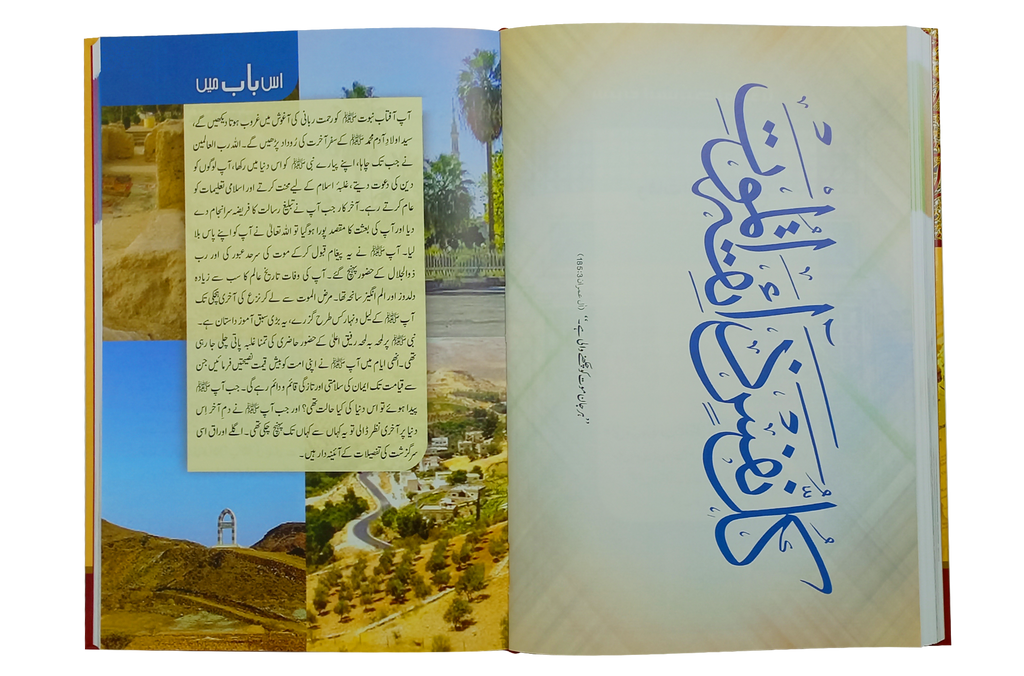 كُلُّ نَفْسٍ ذَائِقَةُ الْمَوْتِ
”ہر جان موت کو چکھنے والی ہے۔“ (آل عمران 3:185)
اس باب میں
آپ آفتاب نبوت ﷺ کو رحمت ربانی کی آغوش میں غروب ہوتا دیکھیں گے،
سید اولاد آدم محمد ﷺ کے سفر آخرت کی رُوداد پڑھیں گے۔ اللہ رب العالمین
نے جب تک چاہا، اپنے پیارے نبی ﷺ کو اس دنیا میں رکھا، آپ لوگوں کو
دین کی دعوت دیتے، غلبۂ اسلام کے لیے محنت کرتے اور اسلامی تعلیمات کو
عام کرتے رہے۔ آخر کار جب آپ نے تبلیغ رسالت کا فریضہ سرانجام دے
دیا اور آپ کی بعثت کا مقصد پورا ہو گیا تو اللہ تعالیٰ نے آپ کو اپنے پاس بلا
لیا۔ آپ ﷺ نے یہ پیغام قبول کر کے موت کی سرحد عبور کی اور رب
ذوالجلال کے حضور پہنچ گئے۔ آپ کی وفات تاریخ عالم کا سب سے زیادہ
دلدوز اور الم انگیز سانحہ تھا۔ مرض الموت سے لے کر نزع کی آخری ہچکی تک
آپ ﷺ کے لیل و نہار کس طرح گزرے، یہ بڑی سبق آموز داستان ہے۔
نبی ﷺ پر لمحہ بہ لمحہ رفیق اعلیٰ کے حضور حاضری کی تمنا غلبہ پاتی چلی جا رہی
تھی۔ انھی ایام میں آپ ﷺ نے اپنی امت کو بیش قیمت نصیحتیں فرمائیں جن
سے قیامت تک ایمان کی سلامتی اور تازگی قائم و دائم رہے گی۔ جب آپ ﷺ
پیدا ہوئے تو اس دنیا کی کیا حالت تھی؟ اور جب آپ ﷺ نے دم آخر اس
دنیا پر آخری نظر ڈالی تو یہ کہاں سے کہاں تک پہنچ چکی تھی۔ اگلے اوراق اسی
سرگزشت کی تفصیلات کے آئینہ دار ہیں۔